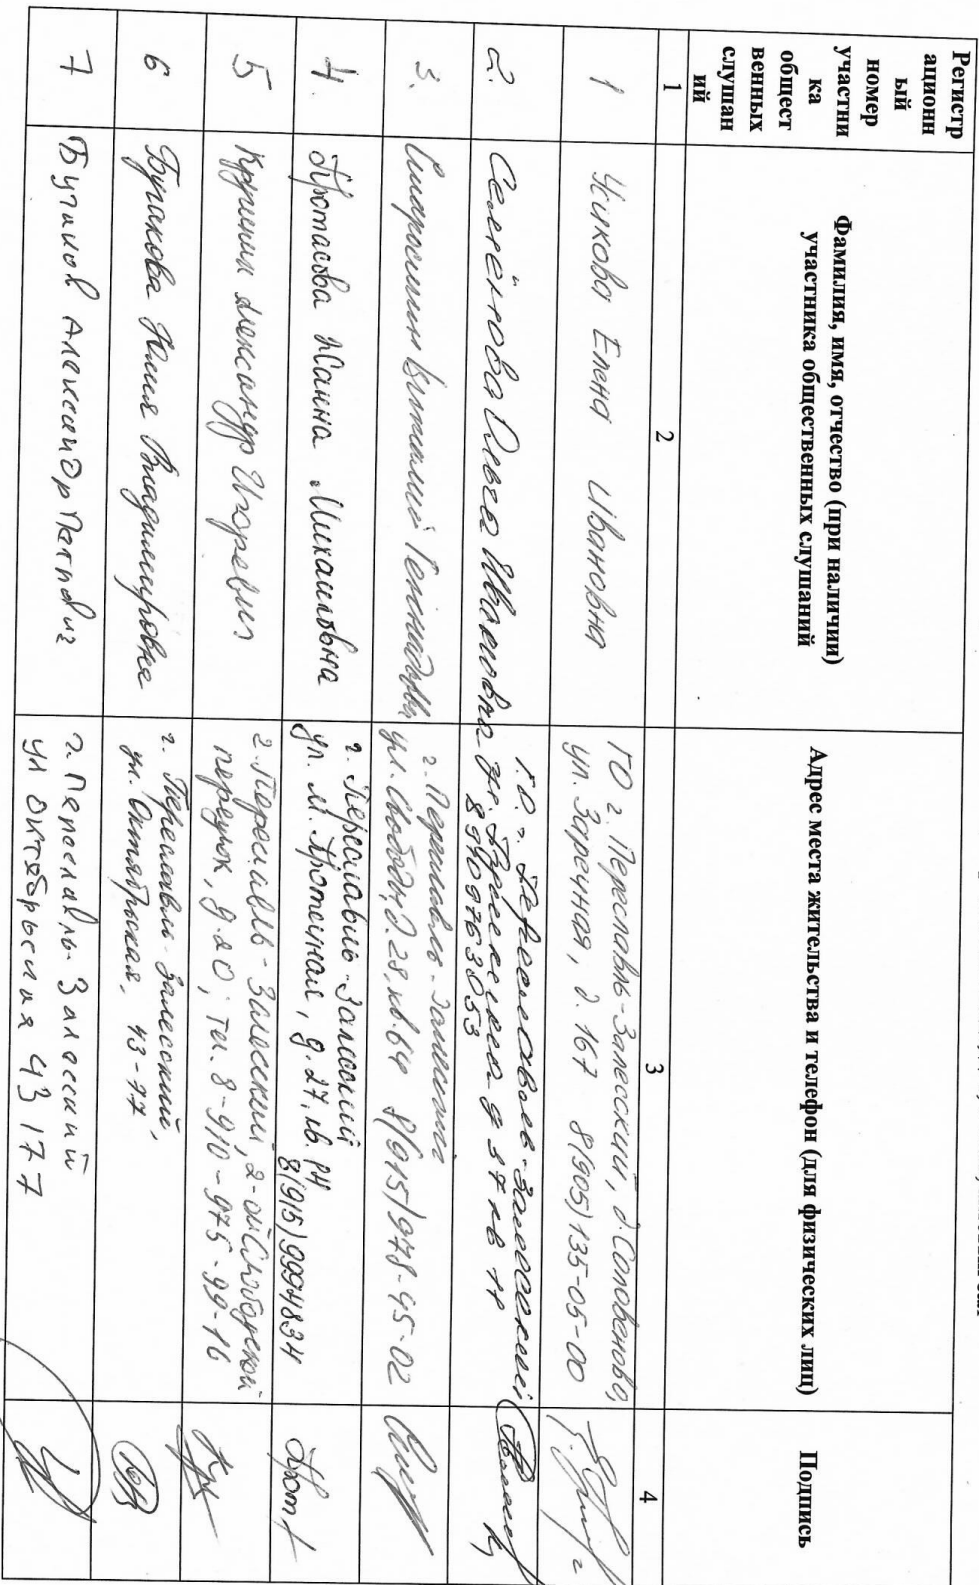 Регистр
ационн
ый
номер
участни
ка
общест
венных
слушан
ий
Фамилия, имя, отчество (при наличии)
участника общественных слушаний
Адрес места жительства и телефон (для физических лиц)
Подпись
1
2
3
4
1
Елена Ивановна
ГО г. Переславль-Залесский, д.
ул. Заречная, д. 167 8(905)135-05-00
2.
Ольга Ивановна
г. Переславль-Залесский
89109763053
3.
г. Переславль-Залесский
ул. Свободы, д. 28, кв. 64 8(915)978-45-02
4.
Протасова Жанна Михайловна
г. Переславль-Залесский
ул. М. Протечная, д. 27, кв.
5
Александр Игоревич
г. Переславль-Залесский, 2-ой Слободской
переулок, д. 20; тел. 8-910-975-99-16
6
Юлия Владимировна
г. Переславль-Залесский,
ул. Октябрьская,
7
Александр
г. Переславль-Залесский
ул Октябрьская 43 177